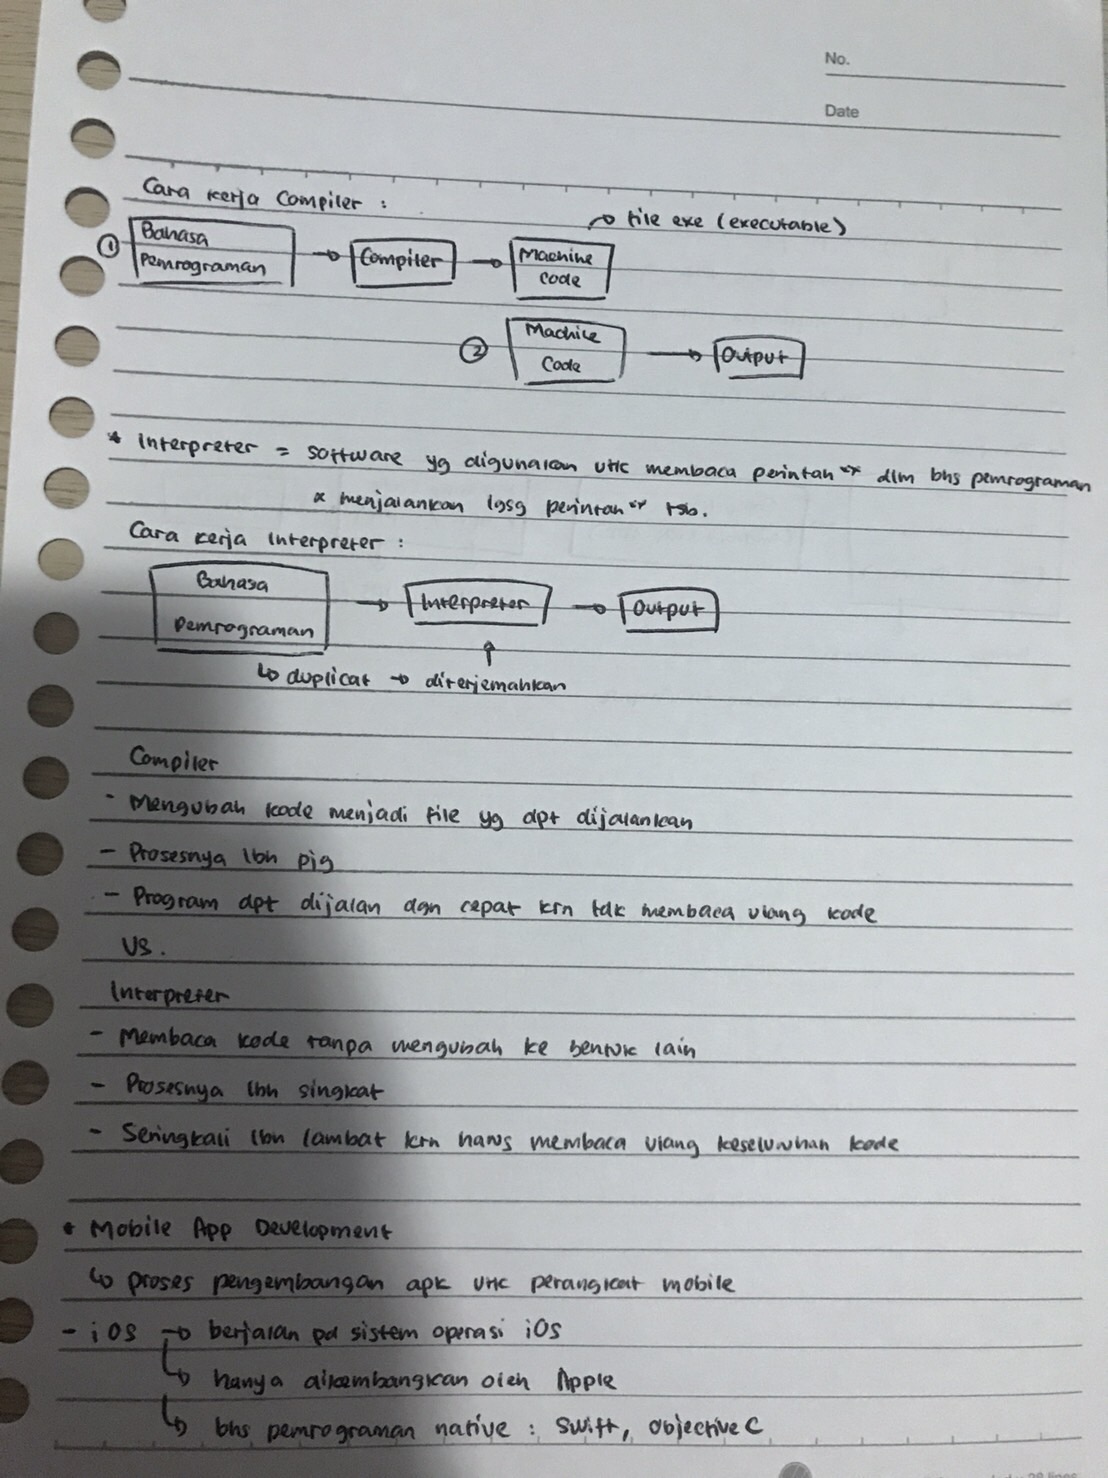 No.
Date
Cara kerja Compiler :
→ file exe (executable)
① Bahasa Pemrograman → Compiler → Machine Code
② Machice Code → Output
* Interpreter = software yg digunakan utk membaca perintah" dlm bhs pemrograman
& menjalankan lgsg perintah" tsb.
Cara kerja Interpreter :
Bahasa Pemrograman → Interpreter → Output
↳ duplicat → diterjemahkan ↑
Compiler
- Mengubah kode menjadi file yg dpt dijalankan
- Prosesnya lbh pjg
- Program dpt dijalan dgn cepat krn tdk membaca ulang kode
VS.
Interpreter
- Membaca kode tanpa mengubah ke bentuk lain
- Prosesnya lbh singkat
- Seringkali lbh lambat krn harus membaca ulang keseluruhan kode
* Mobile App Development
↳ proses pengembangan apk utk perangkat mobile
- iOS → berjalan pd sistem operasi iOs
↳ hanya dikembangkan oleh Apple
↳ bhs pemrograman native : Swift, Objective C